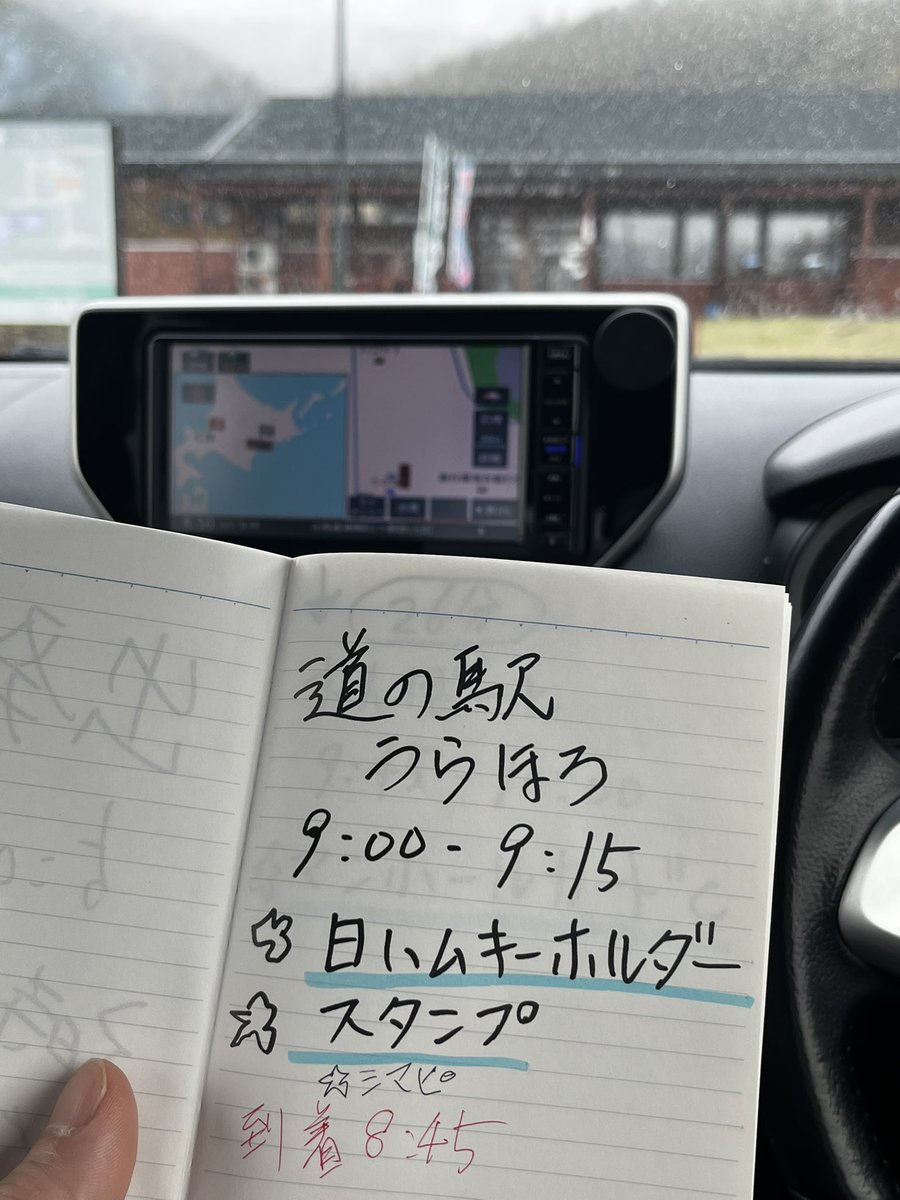 道の駅
うらほろ
9:00 - 9:15
☆ 日ハムキーホルダー
☆ スタンプ
☆シマピ
到着 8:45